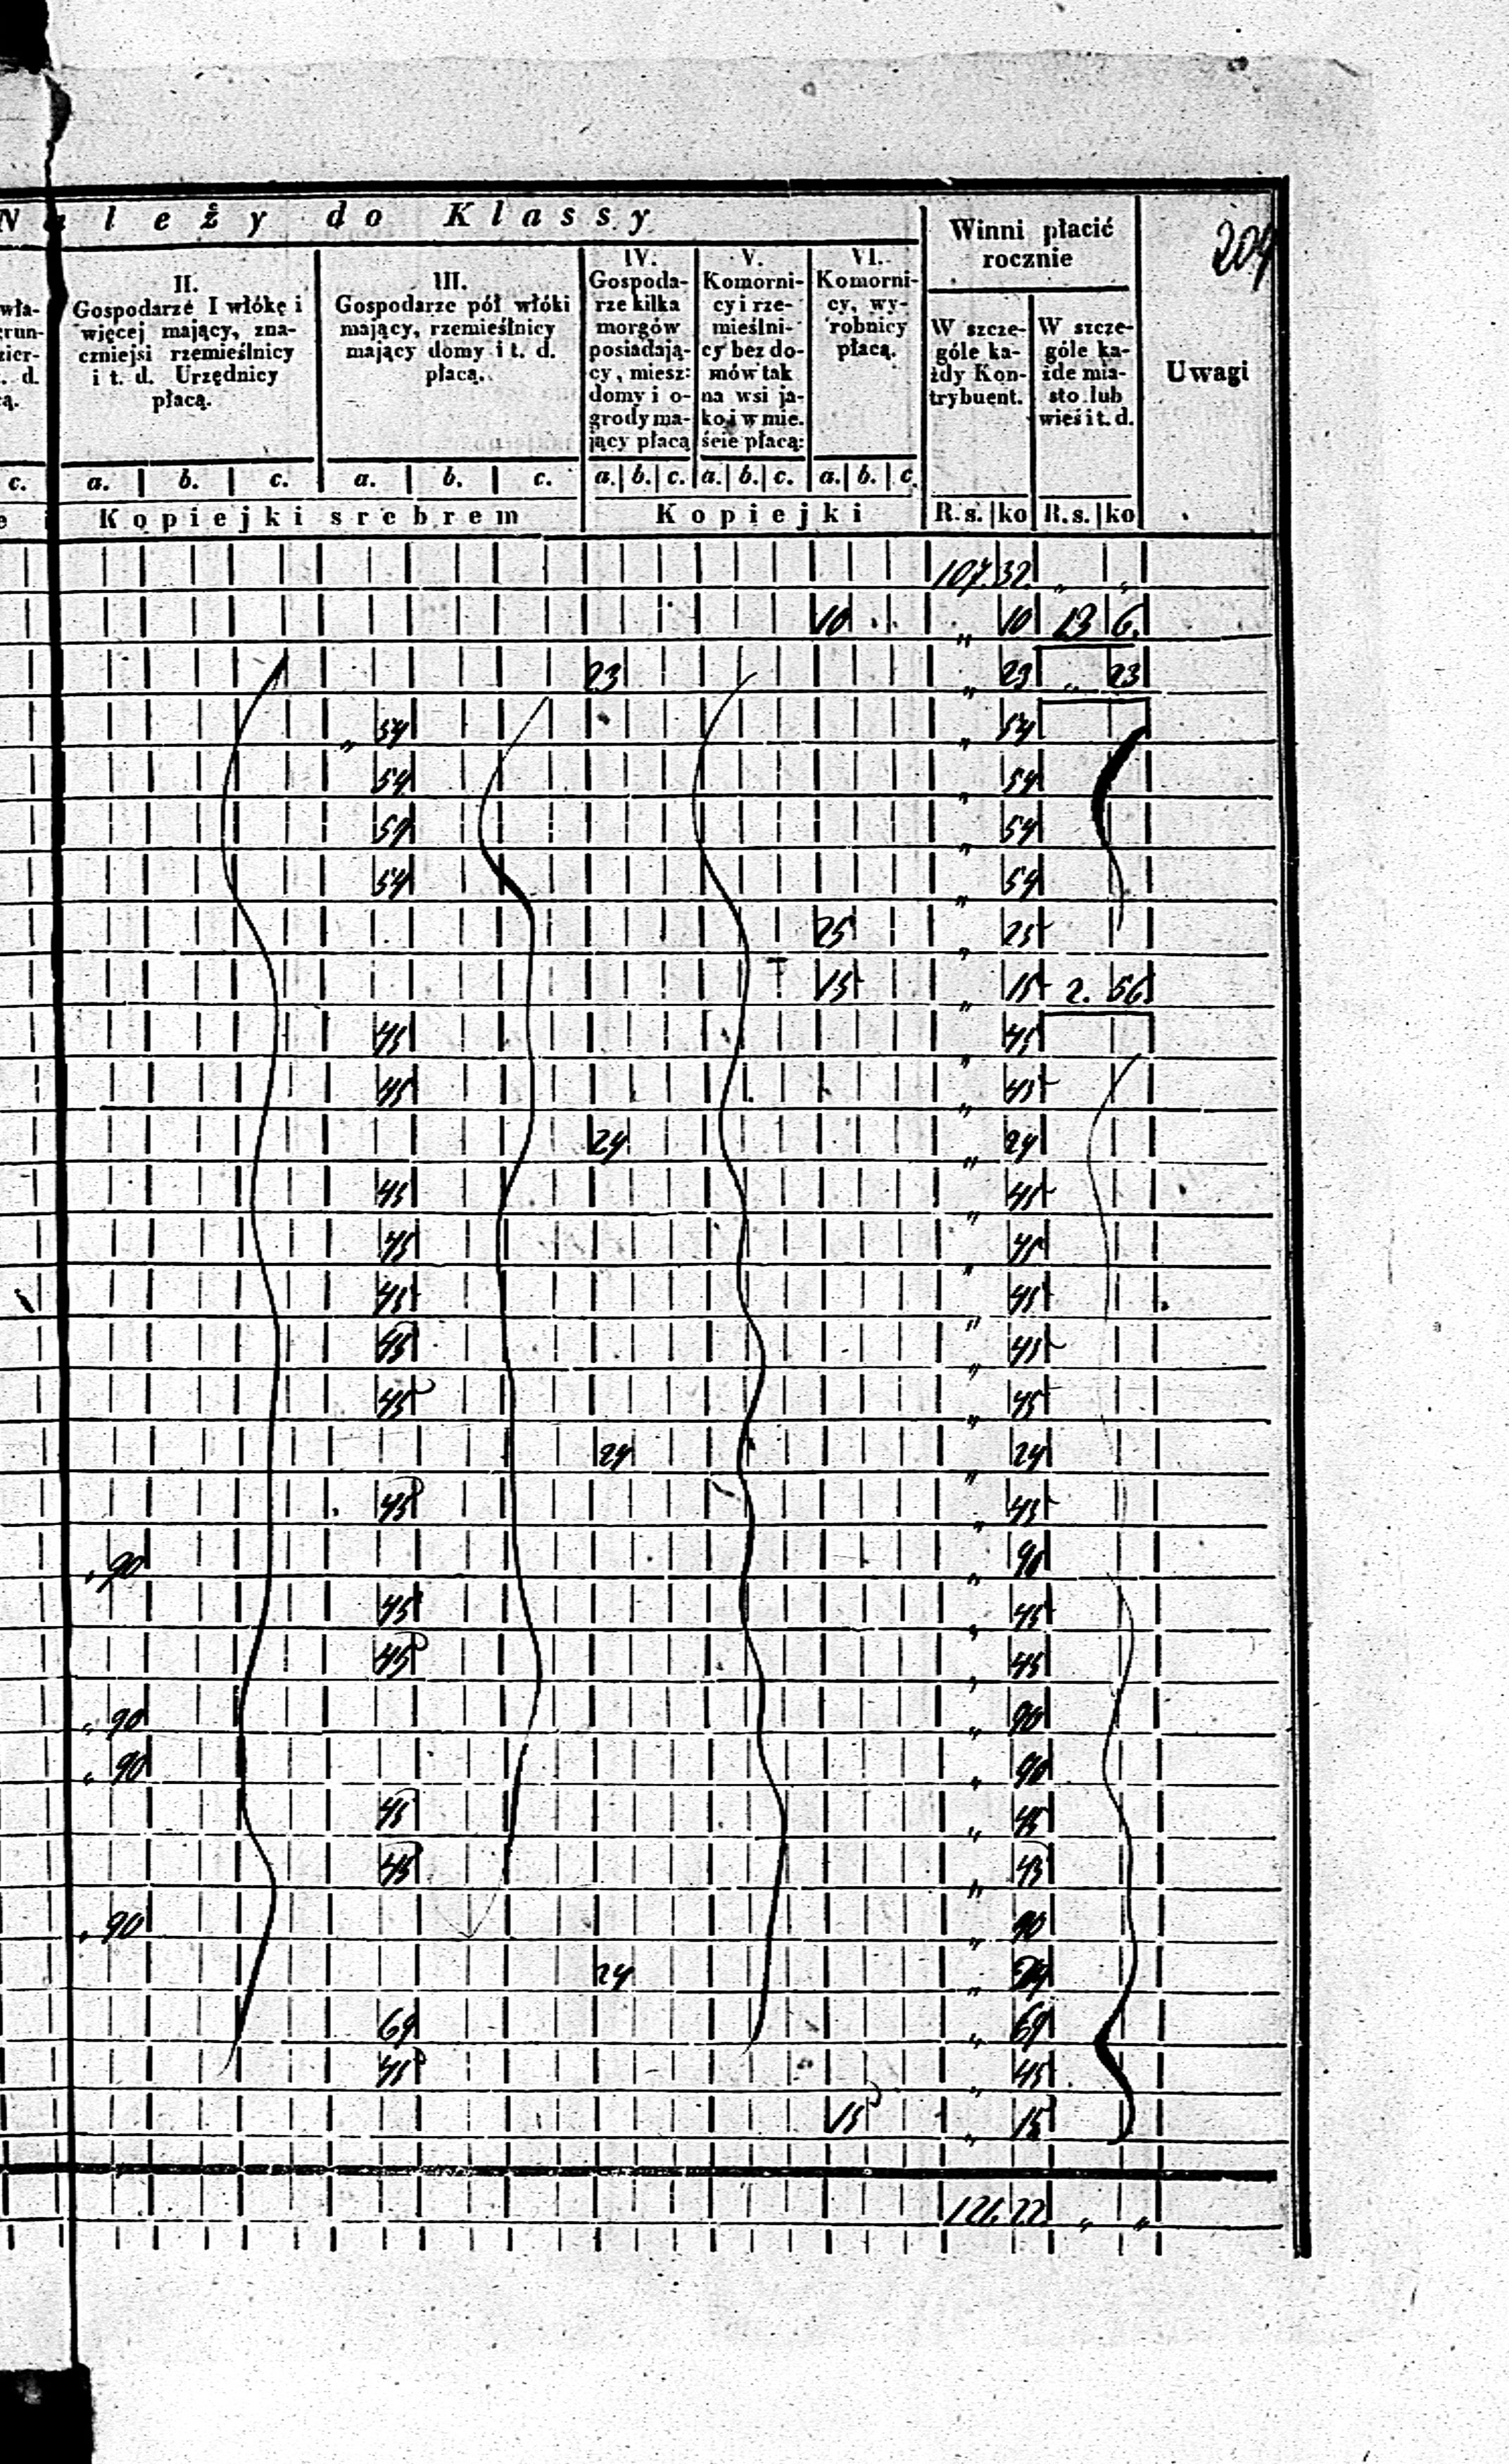 Należy do Klassy
Winni płacić
rocznie
204
Uwagi
wła-
grun-
zier-
t. d.
cą.
II.
Gospodarze I włókę i
więcej mający, zna-
czniejsi rzemieślnicy
i t. d. Urzędnicy
płacą.
III.
Gospodarze pół włóki
mający, rzemieślnicy
mający domy i t. d.
płacą.
IV.
Gospoda-
rze kilka
morgów
posiadają-
cy, miesz:
domy i o-
grody ma-
jący płacą
V.
Komorni-
cy i rze-
mieślni-
cy bez do-
mów tak
na wsi ja-
ko i w mie.
ście płacą:
VI.
Komorni-
cy, wy-
robnicy
płacą.
W szcze-
góle ka-
żdy Kon-
trybuent.
W szcze-
góle ka-
żde mia-
sto lub
wieś i t. d.
c. a. b. c. a. b. c. a. b. c. a. b. c. a. b. c.
Kopiejki srebrem Kopiejki R.s. ko R.s. ko
107. 32. „ „
10 „ 10 13 6.
23 „ 23 „ 23
„ 54 „ 54
54 „ 54
54 „ 54
54 „ 54
25 „ 25
15 „ 15 2. 56
45 „ 45
45 „ 45
24 „ 24
45 „ 45
45 „ 45
45 „ 45
45 „ 45
45 „ 45
24 „ 24
45 „ 45
„ 90 „ 90
45 „ 45
45 „ 45
„ 90 „ 90
„ 90 „ 90
45 „ 45
45 „ 45
„ 90 „ 90
24 „ 24
69 „ 69
45 „ 45
15 „ 15
121. 22. „ „